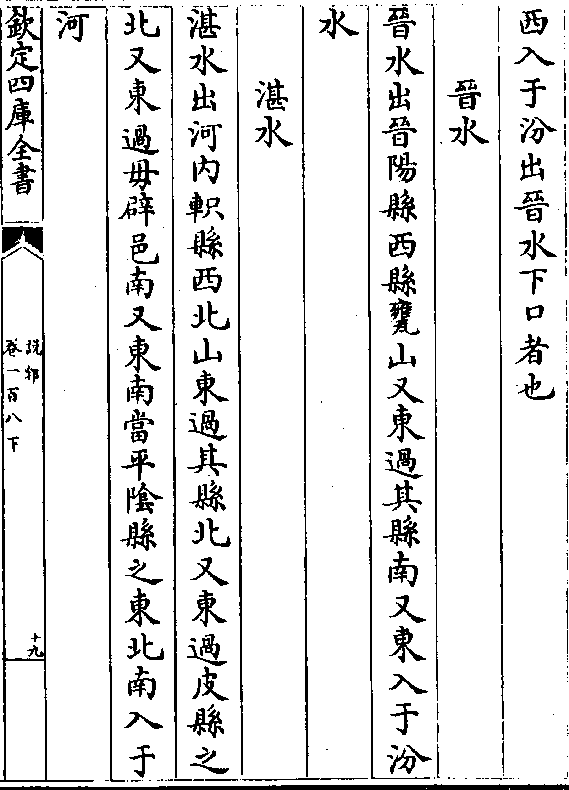 西入于汾出晉水下口者也
晉水
晉水出晉陽縣西縣甕山又東過其縣南又東入于汾
水
湛水
湛水出河内軹縣西北山東過其縣北又東過皮縣之
北又東過毋辟邑南又東南當平隂縣之東北南入于
河
欽定四庫全書
說郛
卷一百八下
十九